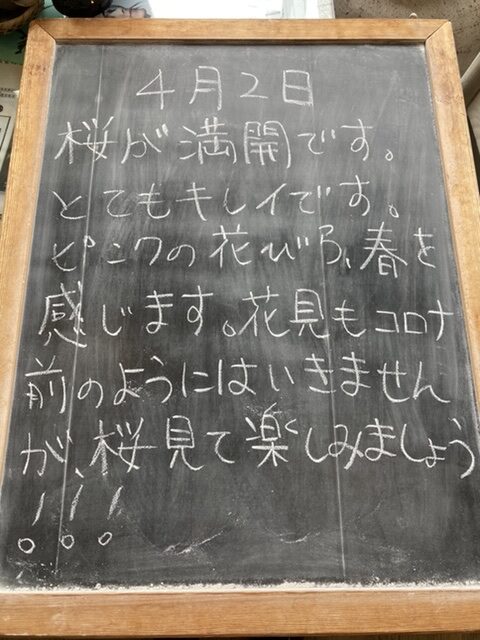 4月2日
桜が満開です。
とてもキレイです。
ピンクの花びら、春を
感じます。花見もコロナ
前のようにはいきません
が、桜見て楽しみましょう
!!!